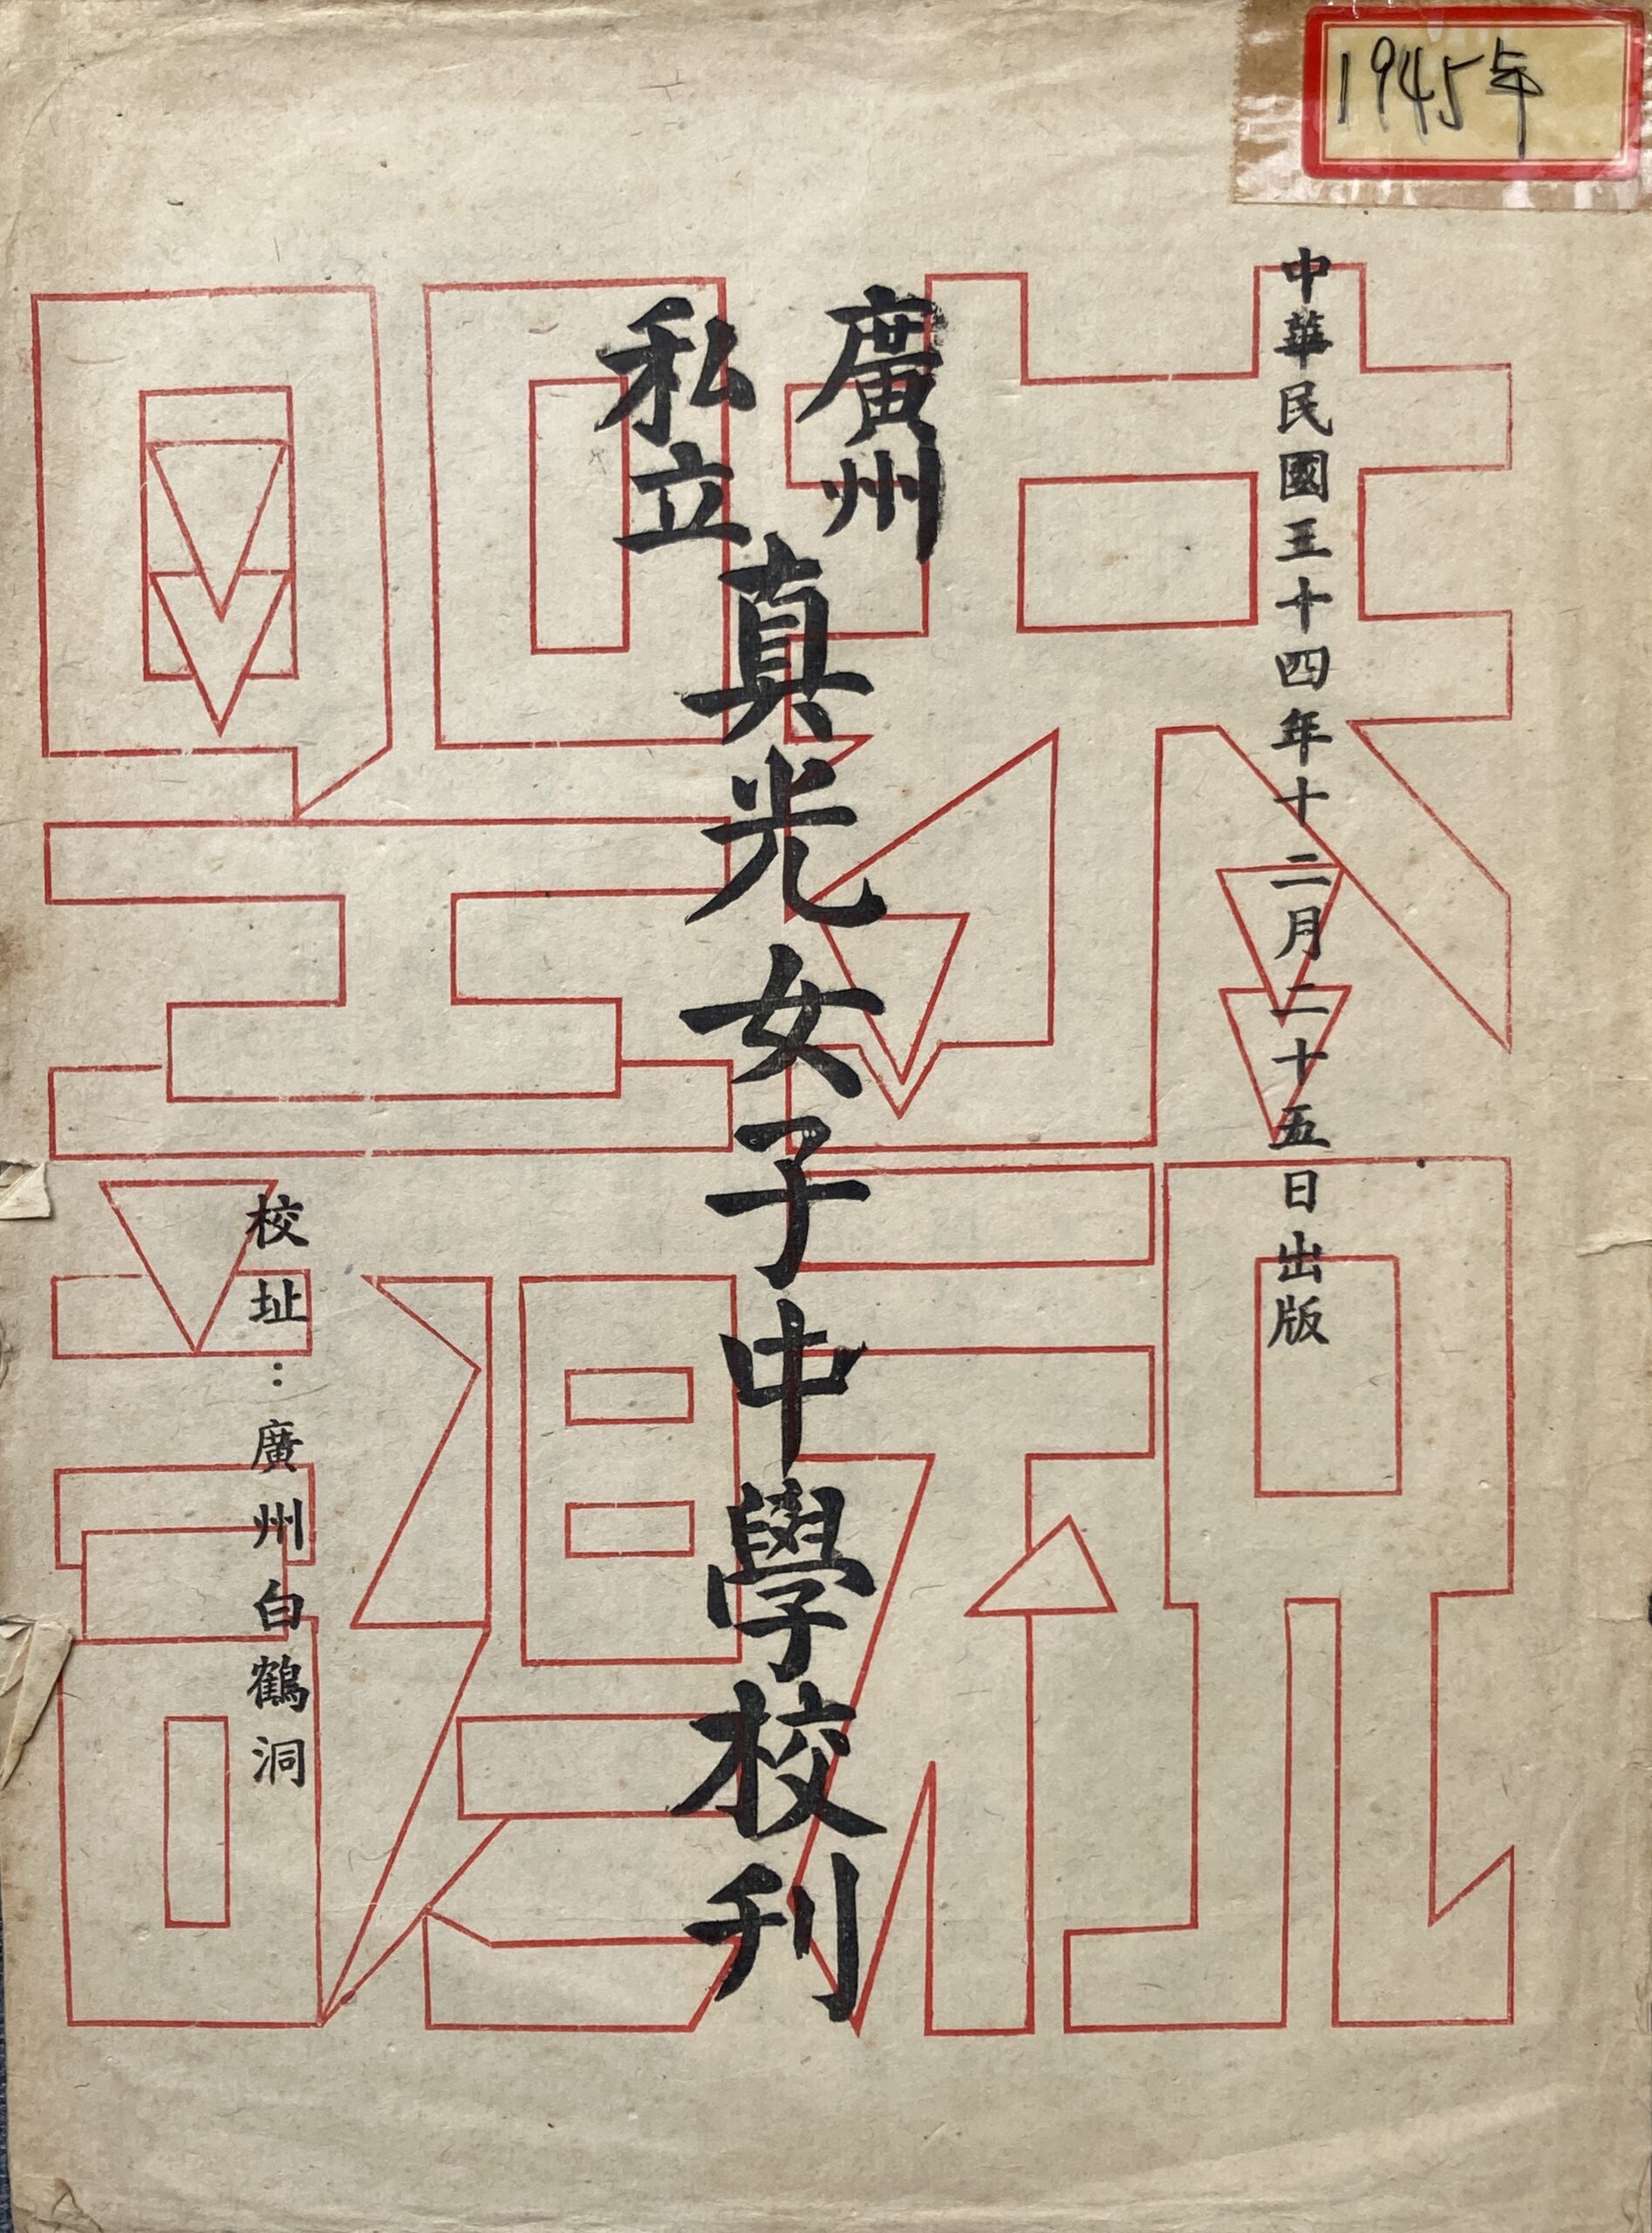 1945年
中華民國三十四年十二月二十五日出版
廣州
私立
真光女子中學校刊
校址：廣州白鶴洞
恭祝
聖誕